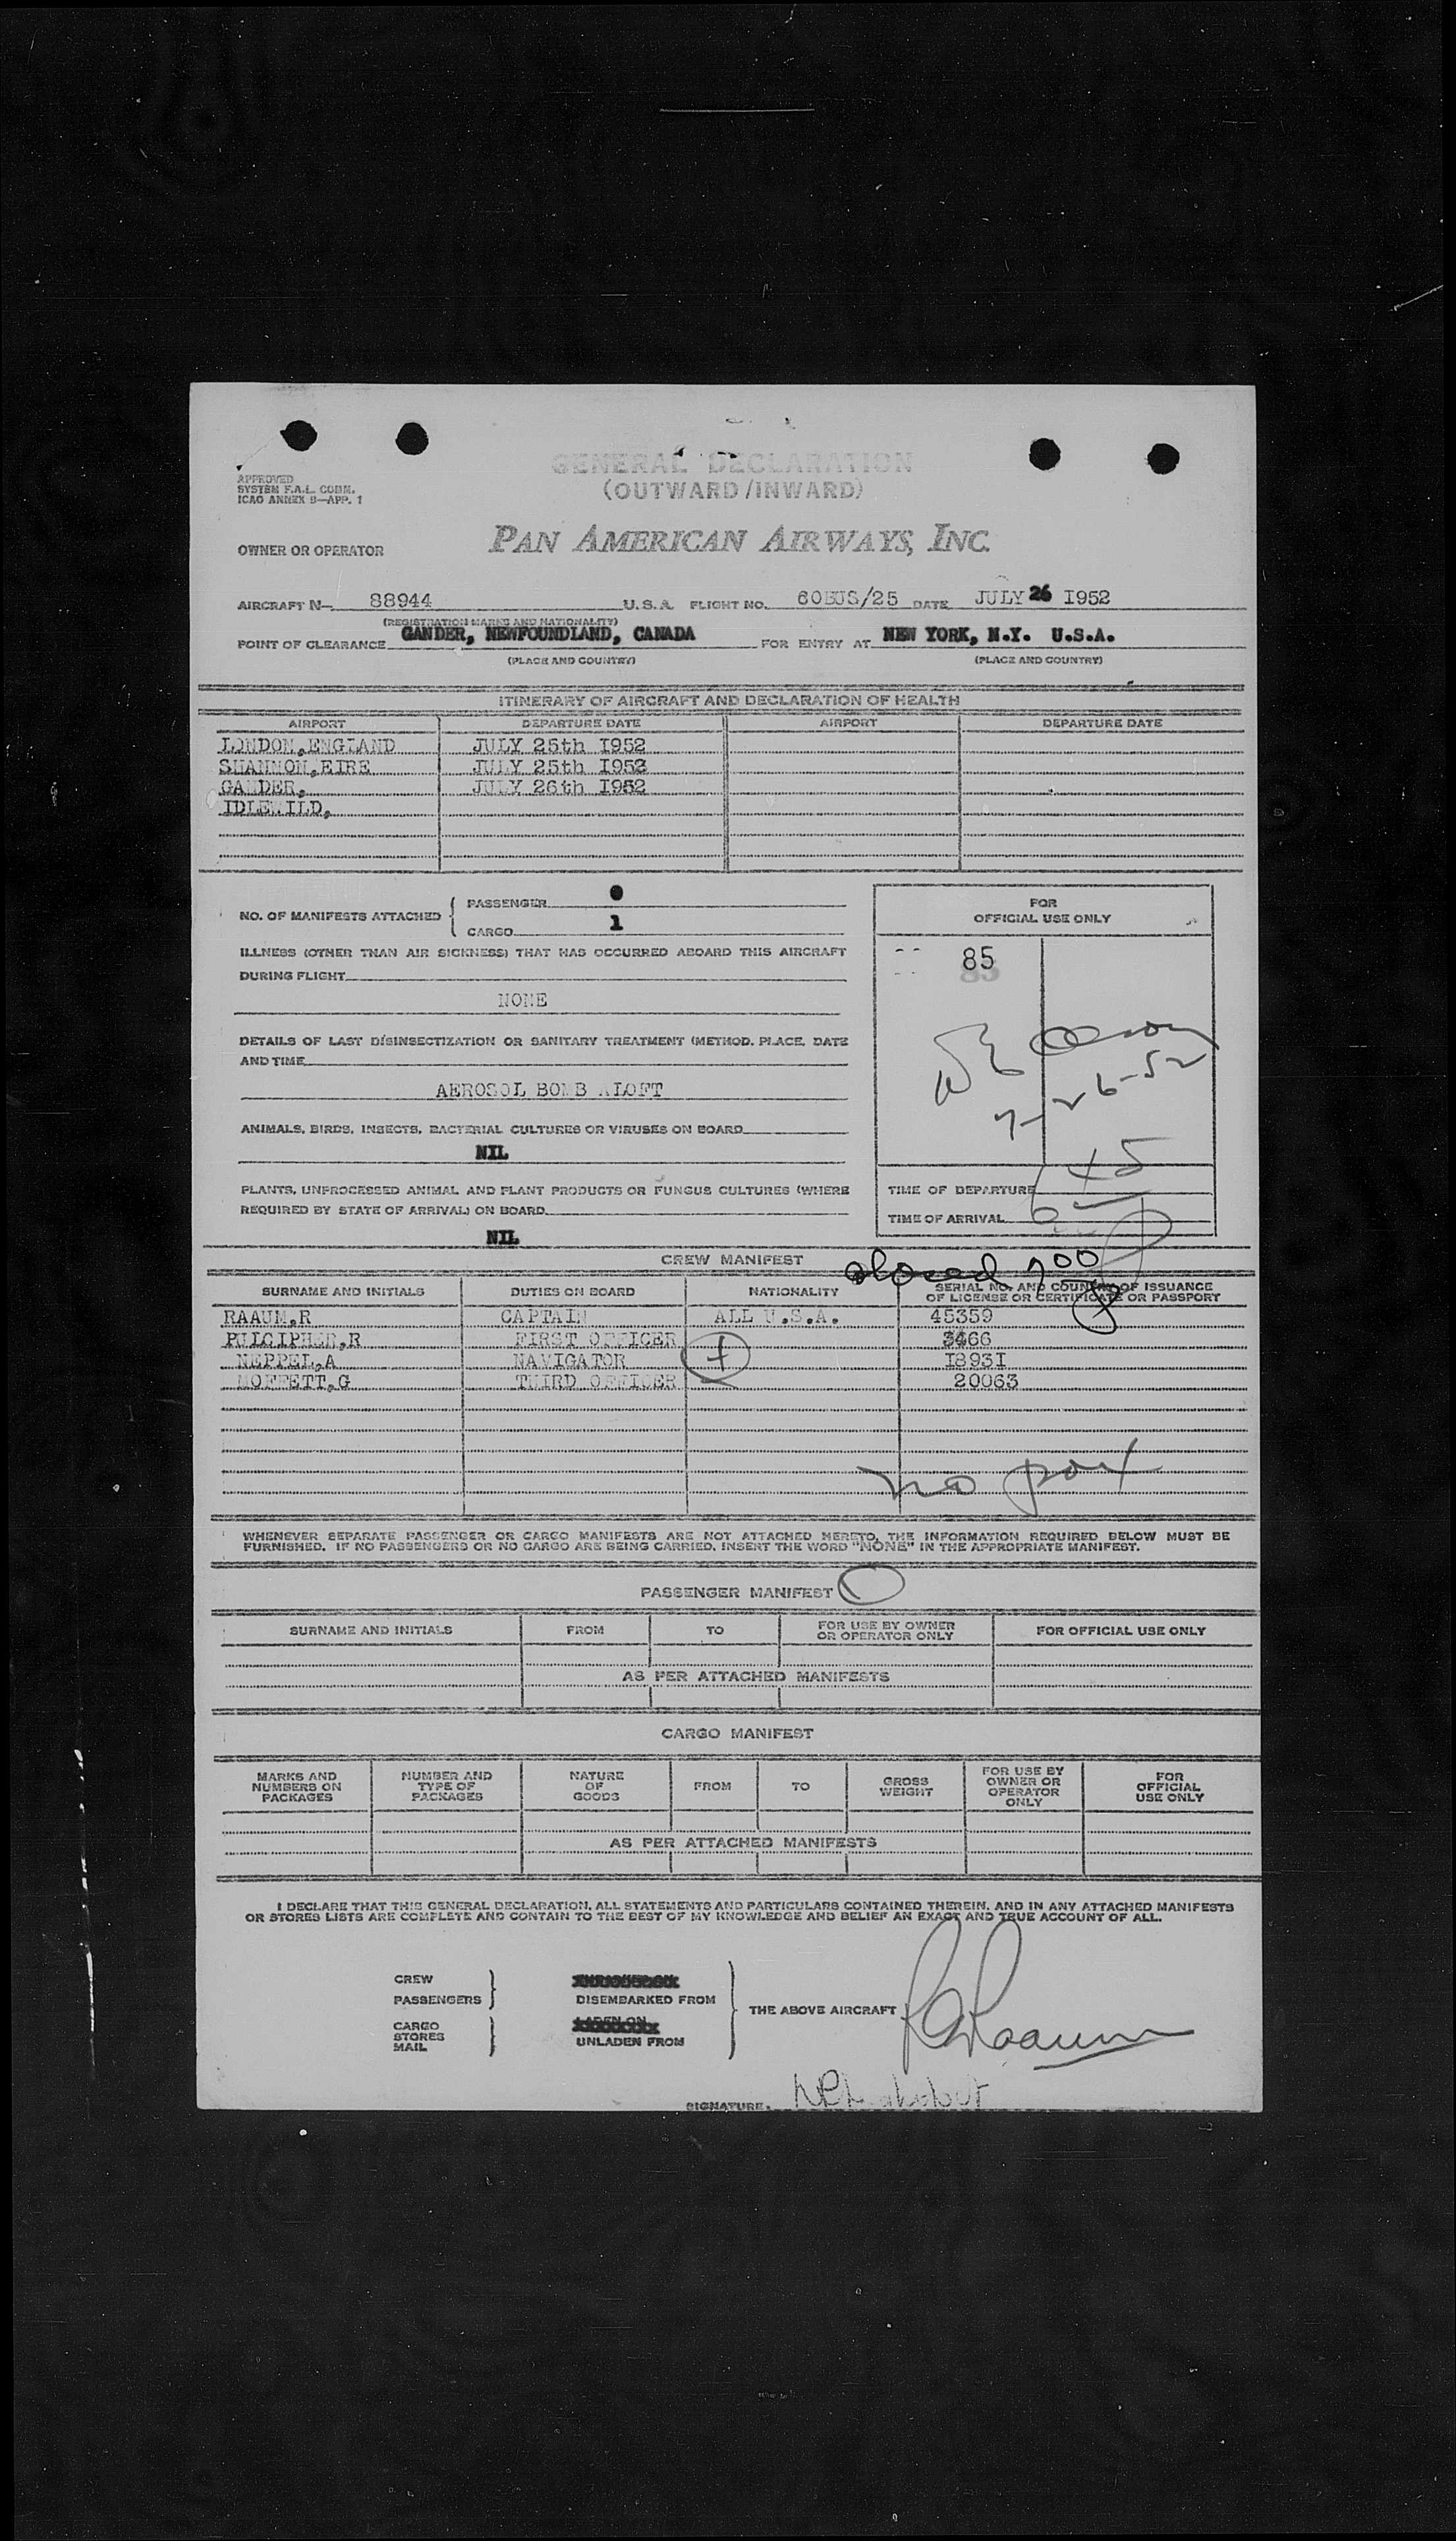 GENERAL DECLARATION
(OUTWARD/INWARD)
APPROVED
SYSTEM F.A.L. COMM.
ICAO ANNEX 9—APP. 1
OWNER OR OPERATOR PAN AMERICAN AIRWAYS, INC.
AIRCRAFT N— 88944 U.S.A. FLIGHT NO. 60BUS/25 DATE JULY 26 1952
(REGISTRATION MARKS AND NATIONALITY)
POINT OF CLEARANCE GANDER, NEWFOUNDLAND, CANADA FOR ENTRY AT NEW YORK, N.Y. U.S.A.
(PLACE AND COUNTRY) (PLACE AND COUNTRY)
ITINERARY OF AIRCRAFT AND DECLARATION OF HEALTH
AIRPORT DEPARTURE DATE AIRPORT DEPARTURE DATE
LONDON,ENGLAND JULY 25th 1952
SHANNON,EIRE JULY 25th 1952
GANDER, JULY 26th 1952
IDLEWILD,
NO. OF MANIFESTS ATTACHED { PASSENGER 0
CARGO 1
ILLNESS (OTHER THAN AIR SICKNESS) THAT HAS OCCURRED ABOARD THIS AIRCRAFT
DURING FLIGHT
NONE
DETAILS OF LAST DISINSECTIZATION OR SANITARY TREATMENT (METHOD, PLACE, DATE
AND TIME
AEROSOL BOMB ALOFT
ANIMALS, BIRDS, INSECTS, BACTERIAL CULTURES OR VIRUSES ON BOARD
NIL
PLANTS, UNPROCESSED ANIMAL AND PLANT PRODUCTS OR FUNGUS CULTURES (WHERE
REQUIRED BY STATE OF ARRIVAL) ON BOARD
NIL
FOR
OFFICIAL USE ONLY
85
7-26-52
TIME OF DEPARTURE
TIME OF ARRIVAL 6 45
closed 700
CREW MANIFEST
SURNAME AND INITIALS DUTIES ON BOARD NATIONALITY SERIAL NO. AND COUNTRY OF ISSUANCE
OF LICENSE OR CERTIFICATE OR PASSPORT
RAAUM,R CAPTAIN ALL U.S.A. 45359
PULCIPHER,R FIRST OFFICER 3466
NEPPEL,A NAVIGATOR 18931
MOFFETT,G THIRD OFFICER 20063
no pax
WHENEVER SEPARATE PASSENGER OR CARGO MANIFESTS ARE NOT ATTACHED HERETO, THE INFORMATION REQUIRED BELOW MUST BE
FURNISHED. IF NO PASSENGERS OR NO CARGO ARE BEING CARRIED, INSERT THE WORD "NONE" IN THE APPROPRIATE MANIFEST.
PASSENGER MANIFEST
SURNAME AND INITIALS FROM TO FOR USE BY OWNER
OR OPERATOR ONLY FOR OFFICIAL USE ONLY
AS PER ATTACHED MANIFESTS
CARGO MANIFEST
MARKS AND
NUMBERS ON
PACKAGES
NUMBER AND
TYPE OF
PACKAGES
NATURE
OF
GOODS
FROM
TO
GROSS
WEIGHT
FOR USE BY
OWNER OR
OPERATOR
ONLY
FOR
OFFICIAL
USE ONLY
AS PER ATTACHED MANIFESTS
I DECLARE THAT THIS GENERAL DECLARATION, ALL STATEMENTS AND PARTICULARS CONTAINED THEREIN, AND IN ANY ATTACHED MANIFESTS
OR STORES LISTS ARE COMPLETE AND CONTAIN TO THE BEST OF MY KNOWLEDGE AND BELIEF AN EXACT AND TRUE ACCOUNT OF ALL.
CREW
PASSENGERS
DISEMBARKED FROM
CARGO
STORES
MAIL
LADEN ON
UNLADEN FROM
THE ABOVE AIRCRAFT
R Raaum
SIGNATURE.